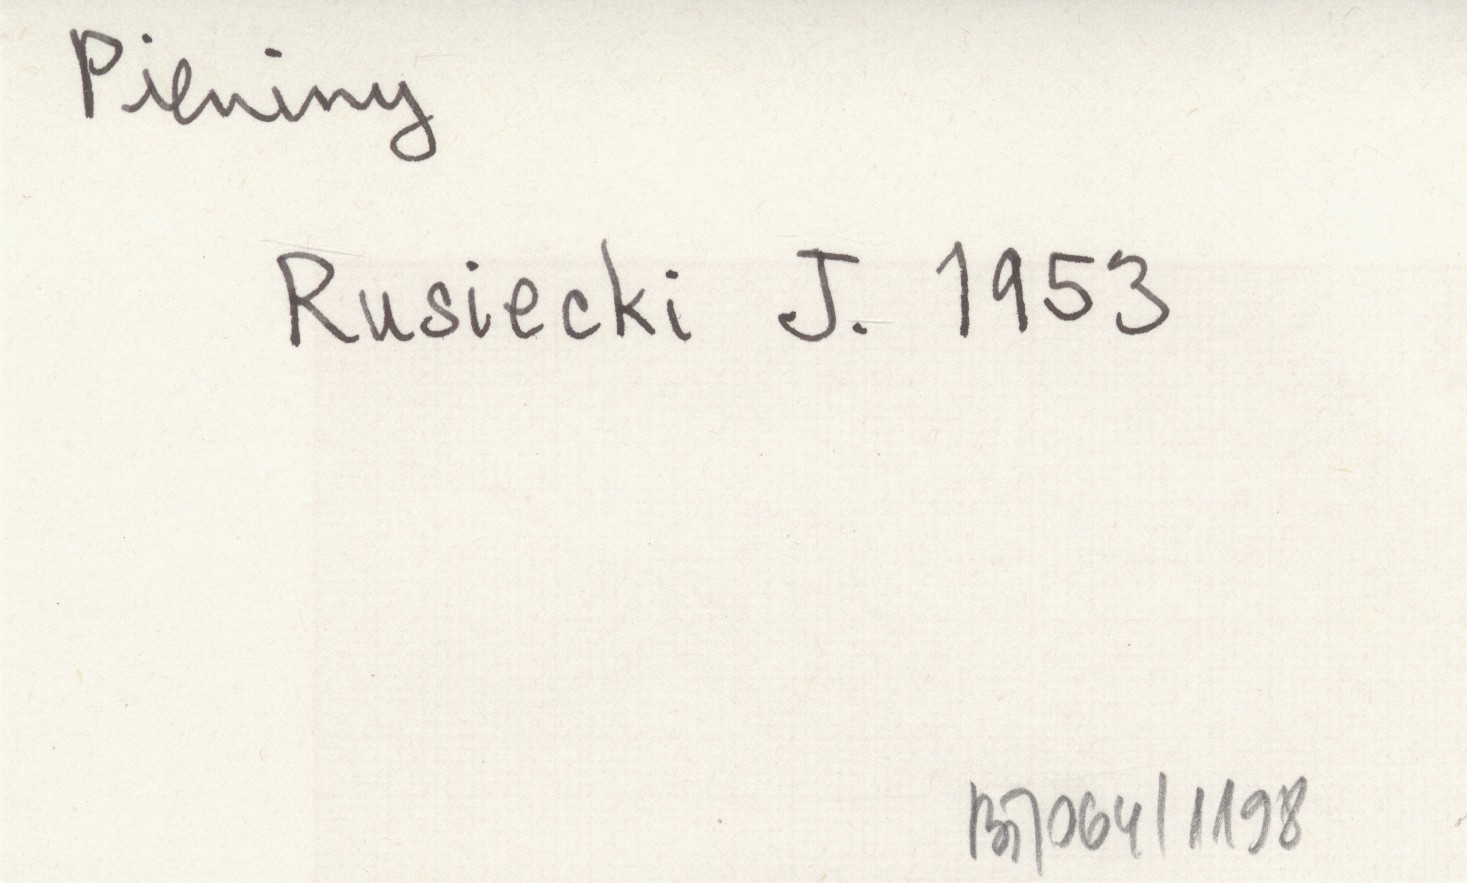 Pieniny
Rusiecki J. 1953
064/1198